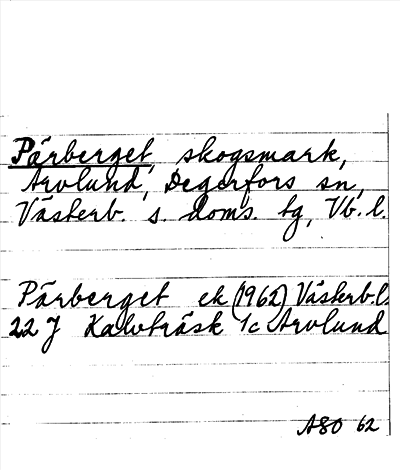 Pärberget, skogsmark,
Arvlund, Degerfors sn,
Västerb. s. doms. tg, Vb. l.
Pärberget ek (1962) Västerb.l.
22 J Kalvträsk 1c Arvlund
ASO 62